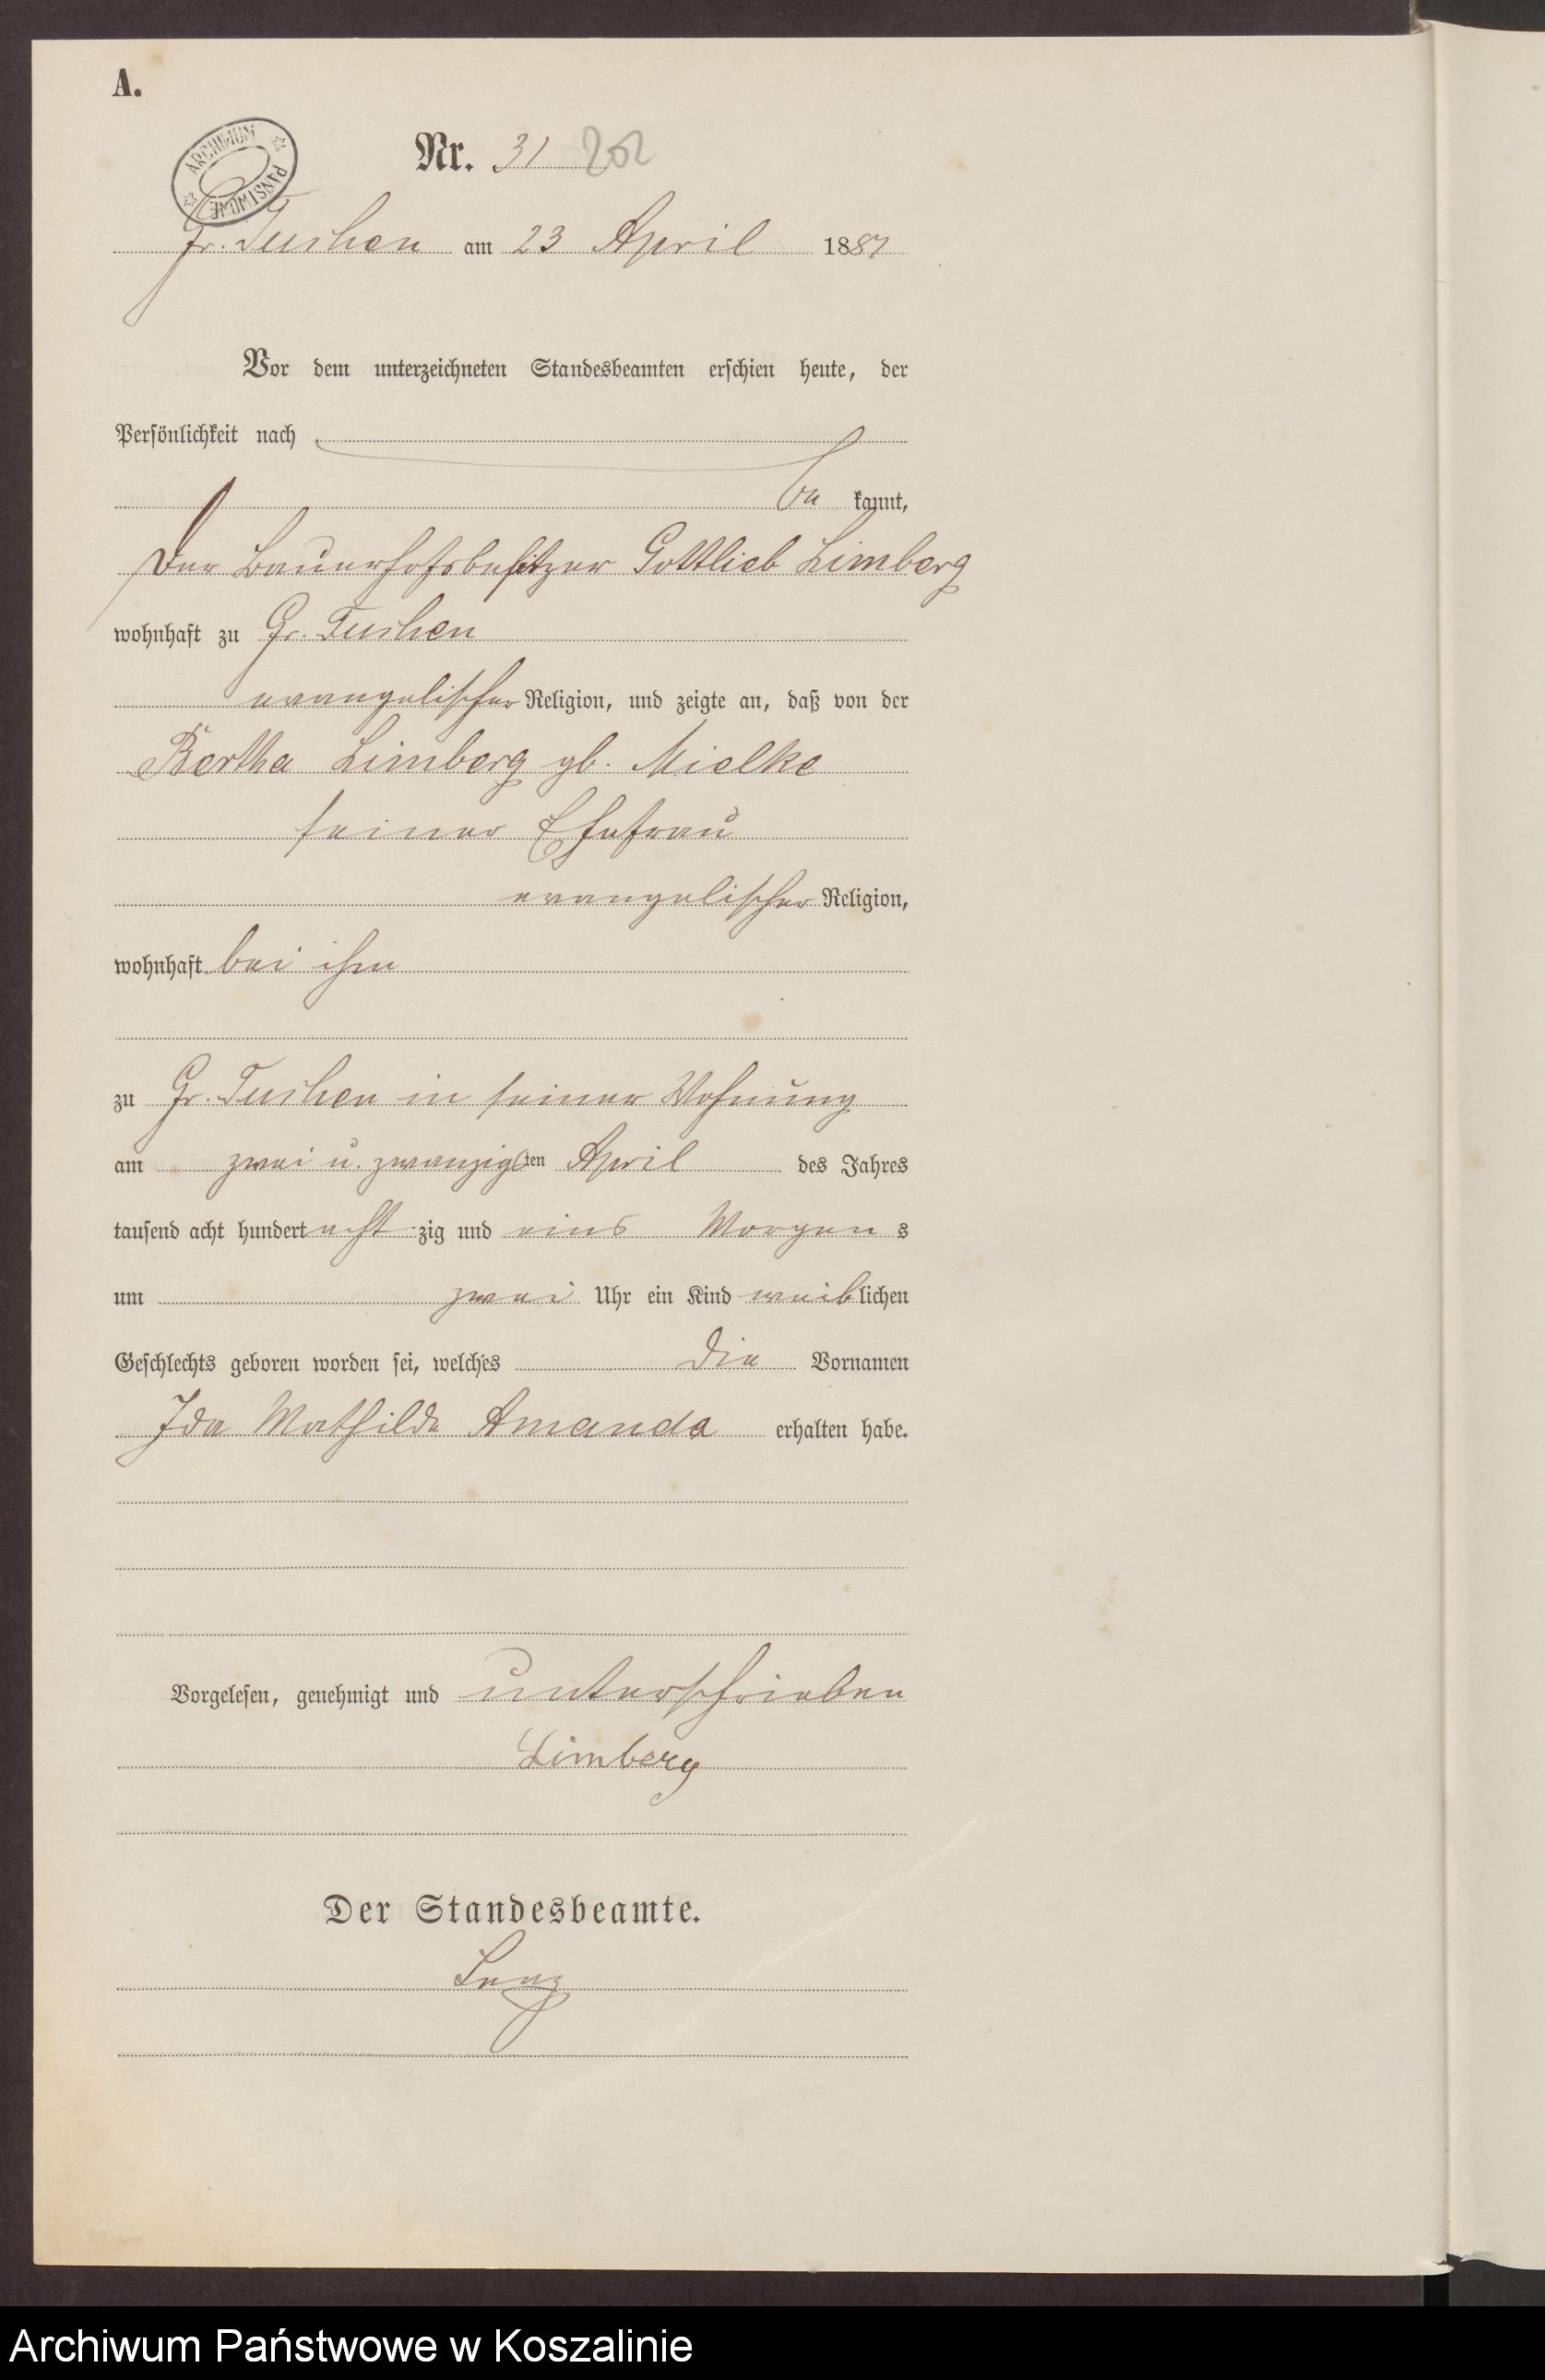 A.
ARCHIWUM PAŃSTWOWE
Nr. 31 202
Gr. Tuchen am 23 April 1881
Vor dem unterzeichneten Standesbeamten erschien heute, der
Persönlichkeit nach
be kannt,
der Bauerhofsbesitzer Gottlieb Limberg
wohnhaft zu Gr. Tuchen
evangelischer Religion, und zeigte an, daß von der
Bertha Limberg gb. Mielke
seiner Ehefrau
evangelischer Religion,
wohnhaft bei ihm
zu Gr. Tuchen in seiner Wohnung
am zwei u. zwanzigsten April des Jahres
tausend acht hundert acht zig und eins Morgens
um zwei Uhr ein Kind weiblichen
Geschlechts geboren worden sei, welches die Vornamen
Ida Mathilde Amanda erhalten habe.
Vorgelesen, genehmigt und unterschrieben
Limberg
Der Standesbeamte.
Lenz
Archiwum Państwowe w Koszalinie